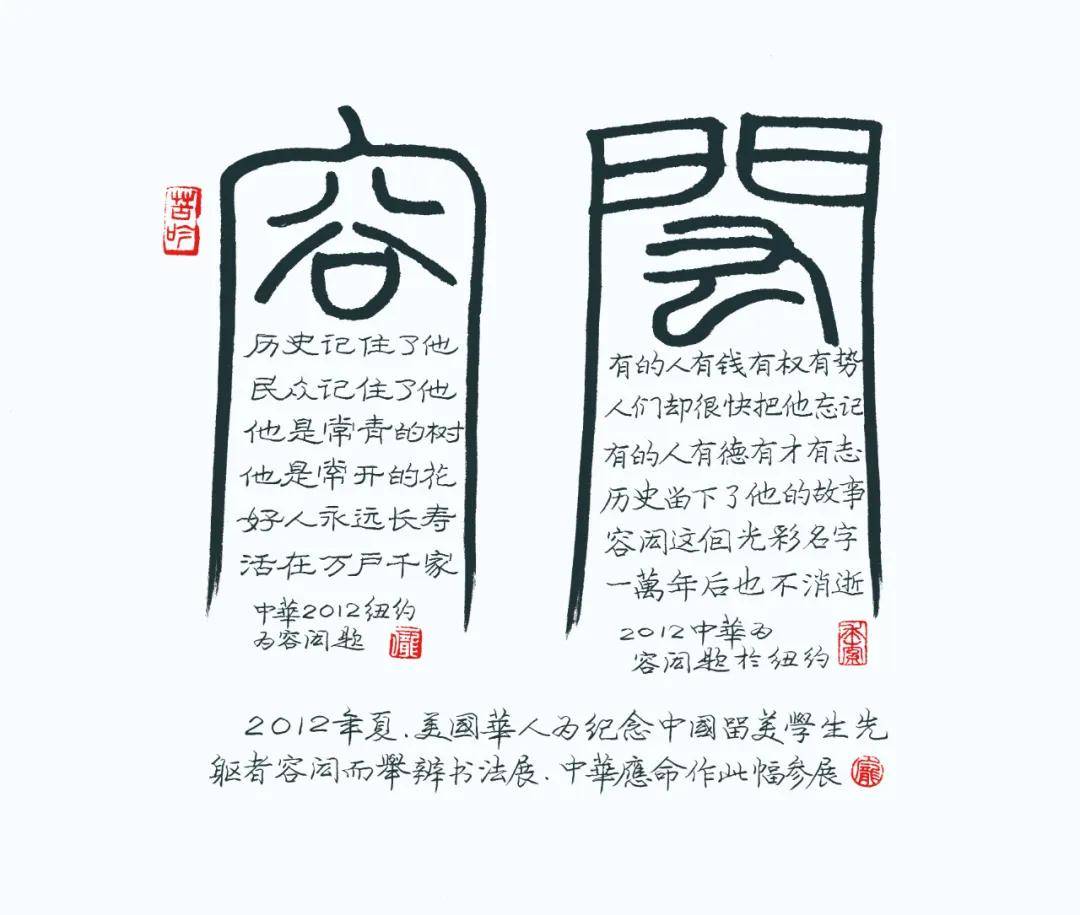 容
閎
苦吟
历史记住了他
民众记住了他
他是常青的树
他是常开的花
好人永远长寿
活在万户千家
中華2012纽约
为容闳题
有的人有钱有权有势
人们却很快把他忘记
有的人有德有才有志
历史留下了他的故事
容闳这個光彩名字
一萬年后也不消逝
2012中華为
容闳题於纽约
求索
2012年夏.美國華人为纪念中國留美學生先
躯者容闳而舉辦书法展.中華應命作此幅参展